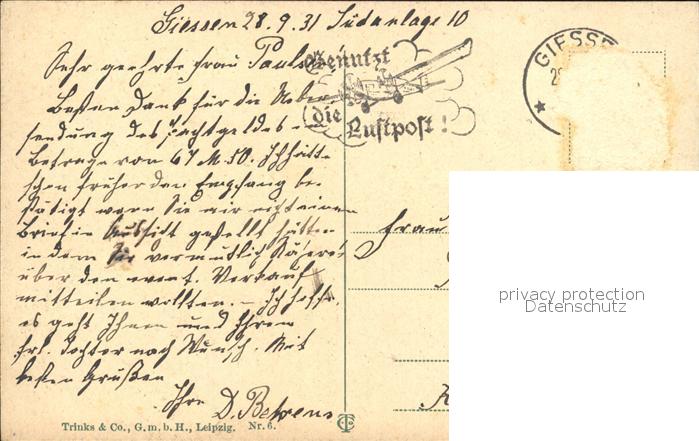 Giessen 28.9.31 Südanlage 10
Sehr geehrte Frau Pauls
Besten Dank für die Ueber-
sendung des Pachtgeldes im
Betrage von 67 M. 50. Ich hätte
schon früher den Empfang be-
stätigt wenn Sie mir nicht einen
Brief in Aussicht gestellt hätten
in dem Sie vermutlich Näheres
über den event. Verkauf
mitteilen wollten. – Ich hoffe,
es geht Ihnen und Ihrem
Frl. Tochter nach Wunsch. Mit
besten Grüßen
Ihr D. Behrens
Benutzt
die Luftpost!
GIESSE
Frau
privacy protection
Datenschutz
Trinks & Co., G. m. b. H., Leipzig. Nr. 6.